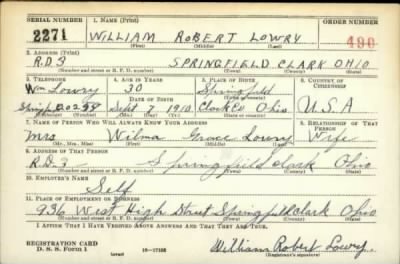 SERIAL NUMBER 1. NAME (Print) ORDER NUMBER
2271 WILLIAM ROBERT LOWRY 490
(First) (Middle) (Last)
2. ADDRESS (Print)
R.D.3 SPRINGFIELD CLARK OHIO
(Number and street or R. F. D. number) (Town) (County) (State)
3. TELEPHONE 4. AGE IN YEARS 5. PLACE OF BIRTH 6. COUNTRY OF CITIZENSHIP
Wm Lowry 30 Springfield
DATE OF BIRTH
Sept. 7 1910 Clark Co Ohio U.S.A
(Exchange) (Number) (Mo.) (Day) (Yr.) (State or country)
7. NAME OF PERSON WHO WILL ALWAYS KNOW YOUR ADDRESS 8. RELATIONSHIP OF THAT PERSON
Mrs Wilma Grace Lowry Wife
(Mr., Mrs., Miss) (First) (Middle) (Last)
9. ADDRESS OF THAT PERSON
R.D.3 Springfield Clark Ohio
(Number and street or R. F. D. number) (Town) (County) (State)
10. EMPLOYER'S NAME
Self
11. PLACE OF EMPLOYMENT OR BUSINESS
936 West High Street Springfield Clark Ohio
(Number and street or R. F. D. number) (Town) (County) (State)
I AFFIRM THAT I HAVE VERIFIED ABOVE ANSWERS AND THAT THEY ARE TRUE.
REGISTRATION CARD
D. S. S. Form 1 16—17105 William Robert Lowry
(over) (Registrant's signature)